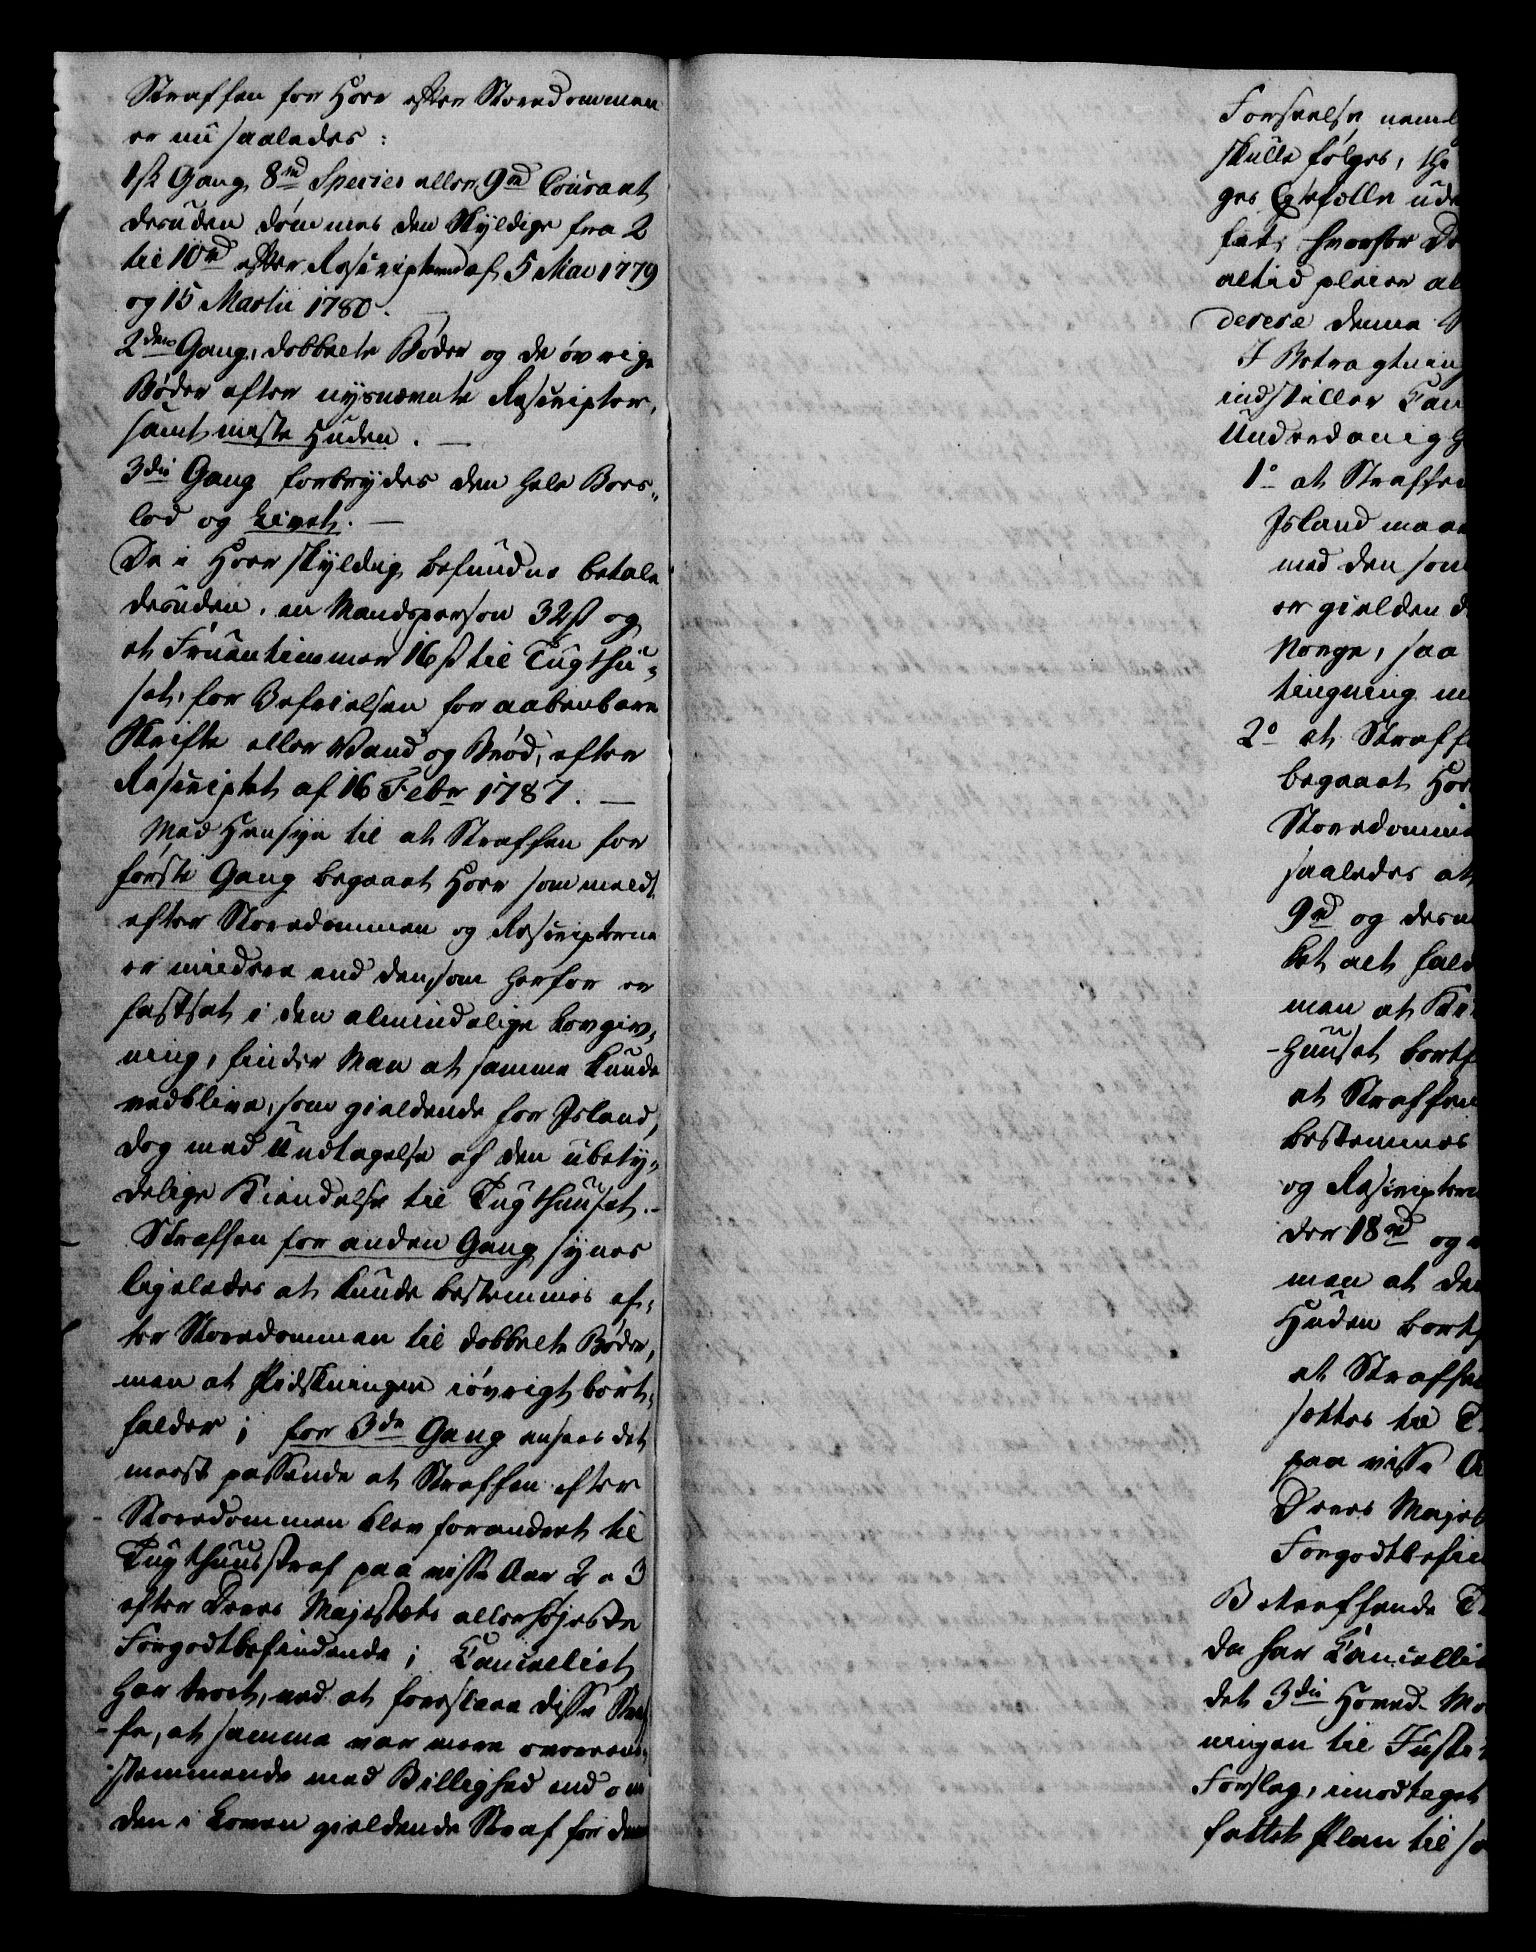 Straffen for Hoer efter Storedommen
er nu saaledes:
1ste Gang 8rd Species eller 9rd Courant
desuden dømmes den Skyldige fra 2
til 10rd efter Rescripterne af 5 Mai 1779
og 15 Martii 1780. —
2den Gang, dobbelte Bøder og de øvrige
Bøder efter nysnævnte Rescripter,
samt miste Huden. —
3die Gang forbrydes den hele Boes-
lod og Livet. —
De i Hoer skyldig befundne betale
desuden, en Mandsperson 32 ß og
et Fruentimmer 16 ß til Tugthu-
set, for Befrielsen for aabenbare
Skrifte eller Vand og Brød, efter
Rescriptet af 16 Febr 1787. —
Med Hensyn til at Straffen for
første Gang begaaet Hoer som meldt
efter Storedommen og Rescripterne
er mindre end den, som herfor er
fastsat i den almindelige Lovgiv-
ning, finder Man at samme kunde
vedblive, som gieldende for Island,
dog med Undtagelse af den ubety-
delige Kiendelse til Tugthuuset. —
Straffen for anden Gang synes
ligeledes at kunde bestemmes ef-
ter Storedommen til dobbelte Bøder,
men at Pidskningen iøvrigt bort-
falder; for 3de Gang ansees det
meest passende at Straffen efter
Storedommen blev forandret til
Tugthuusstraf paa visse Aar 2 a 3
efter Deres Majestæts allerhøjeste
Forgodtbefindende; Cancelliet
har troet, ved at foreslaae disse Straf-
fe, at samme var mere overeens-
stemmende med Billighed end om
den i Loven gieldende Straf for denne
Forseelse nemlig
skulle følges, the
ges Egtefælle ude
fat, hvorfor De
altid pleier al
derese denne
I Betragtning
indstiller Can
Underdanigh
1° at Straffen
Island maae
med den som
er gielden d
Norge, saa
tingning m
2° at Straffe
begaaet Hoer
Storedomme
saaledes at
9rd og desu
ket alt fald
men at
-huuset bortf
at Straffen
bestemmes
og Rescripter
der 18rd og
men at den
Huden bortf
at Straffen
sættes til T
paa visse A
Deres Majest
Forgodtbefin
Betreffende
da har Cancellie
det 3die Hoved-
ningen til Justi
Forslag, imodtaget
fattet Plan til